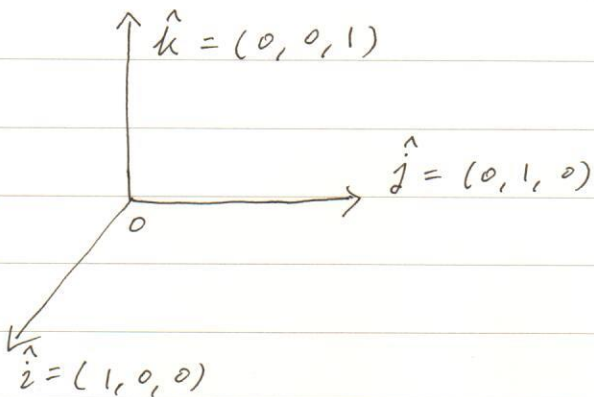 k̂ = (0, 0, 1)
ĵ = (0, 1, 0)
0
î = (1, 0, 0)